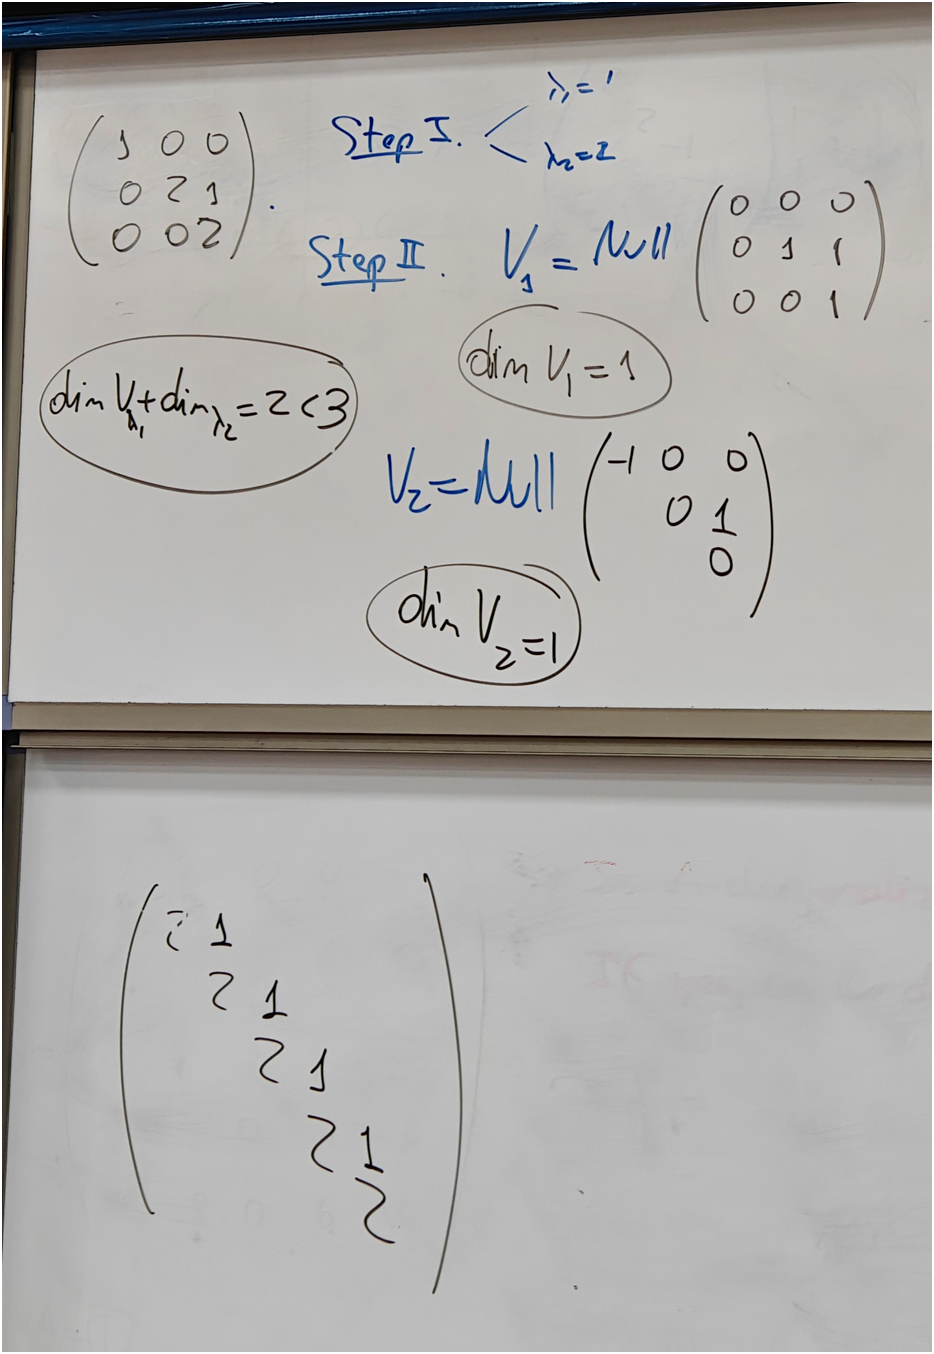 1 0 0
0 2 1
0 0 2 .
Step I. λ₁ = 1
λ₂ = 2
Step II. V₁ = Null
0 0 0
0 1 1
0 0 1
dim V₁ = 1
dim V_λ₁ + dim_λ₂ = 2 < 3
V₂ = Null
-1 0 0
0 1
0
dim V₂ = 1
2 1
2 1
2 1
2 1
2